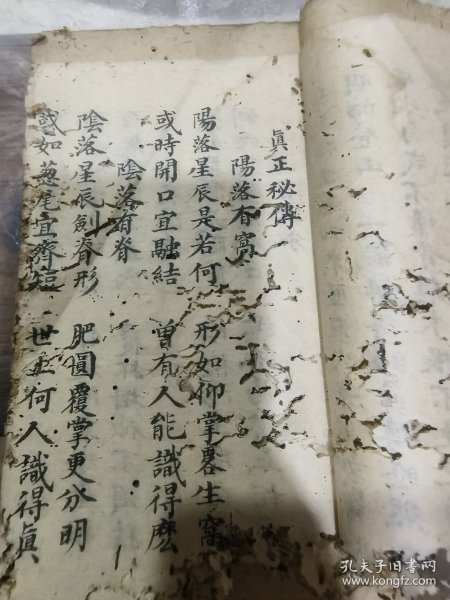 真正秘傳
陽落有窩
陽落星辰是若何 形如仰掌畧生窩
或時開口宜融結 曾有人能識得麽
陰落有脊
陰落星辰劍脊形 肥圓覆掌更分明
或如葱尾宜齊短 世上何人識得真
孔夫子旧书网
www.kongfz.com